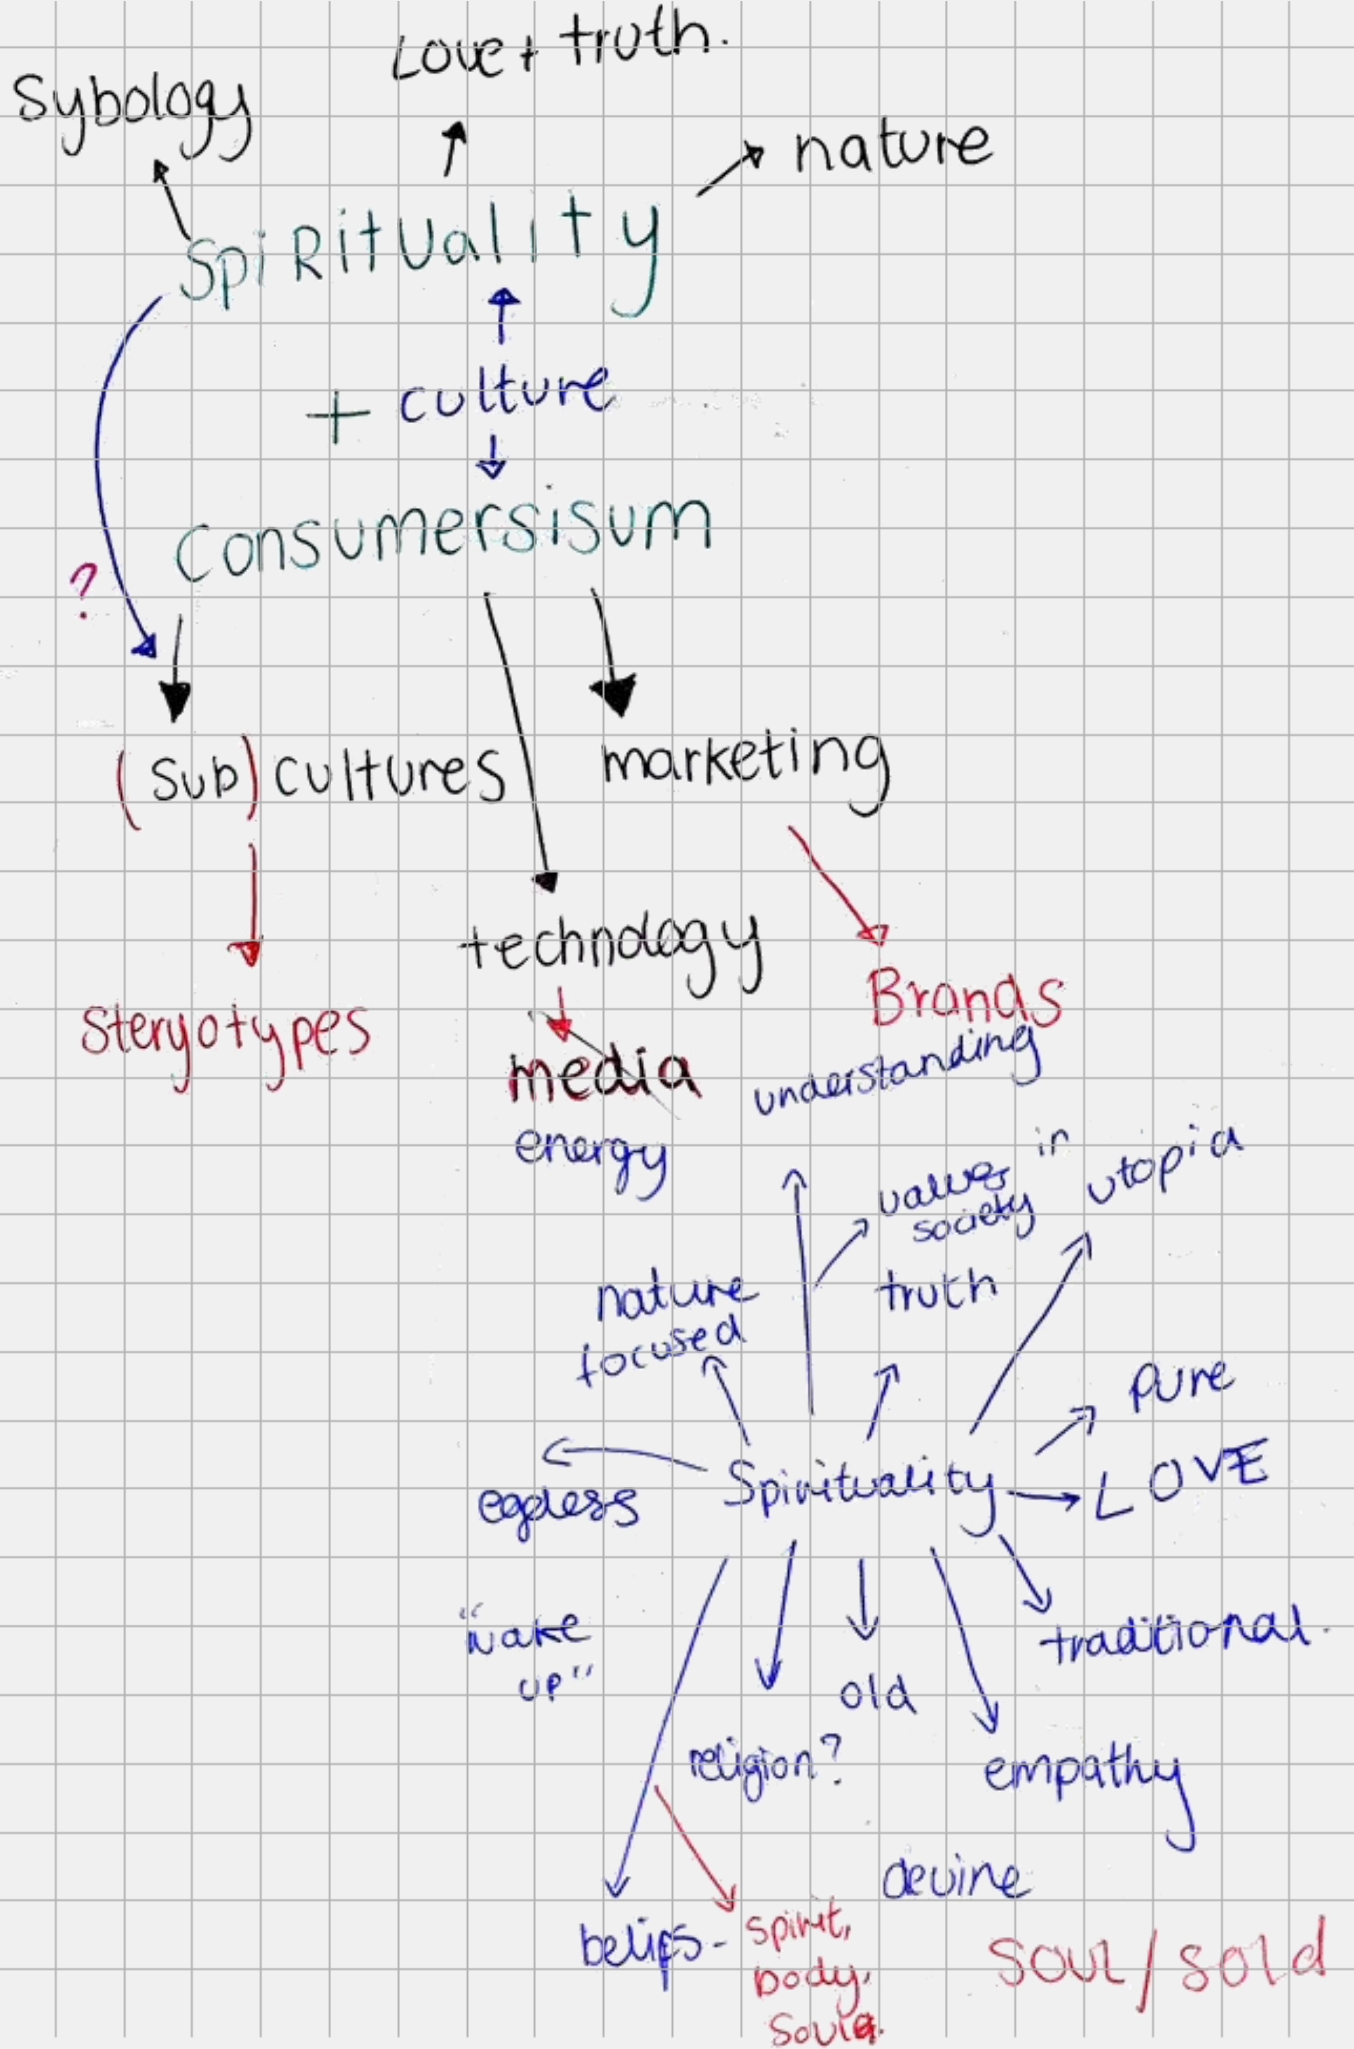 Love + truth.
Sybology
nature
SpiRituality
+ culture
Consumersisum
?
(Sub) cultures
marketing
technology
Brands
Steryotypes
media
understanding
energy
values in
society
utopia
nature
focused
truth
Pure
Spirituality
LOVE
egoless
"wake
up"
traditional.
old
religion?
empathy
devine
belifs - spirit,
body,
soul/sold